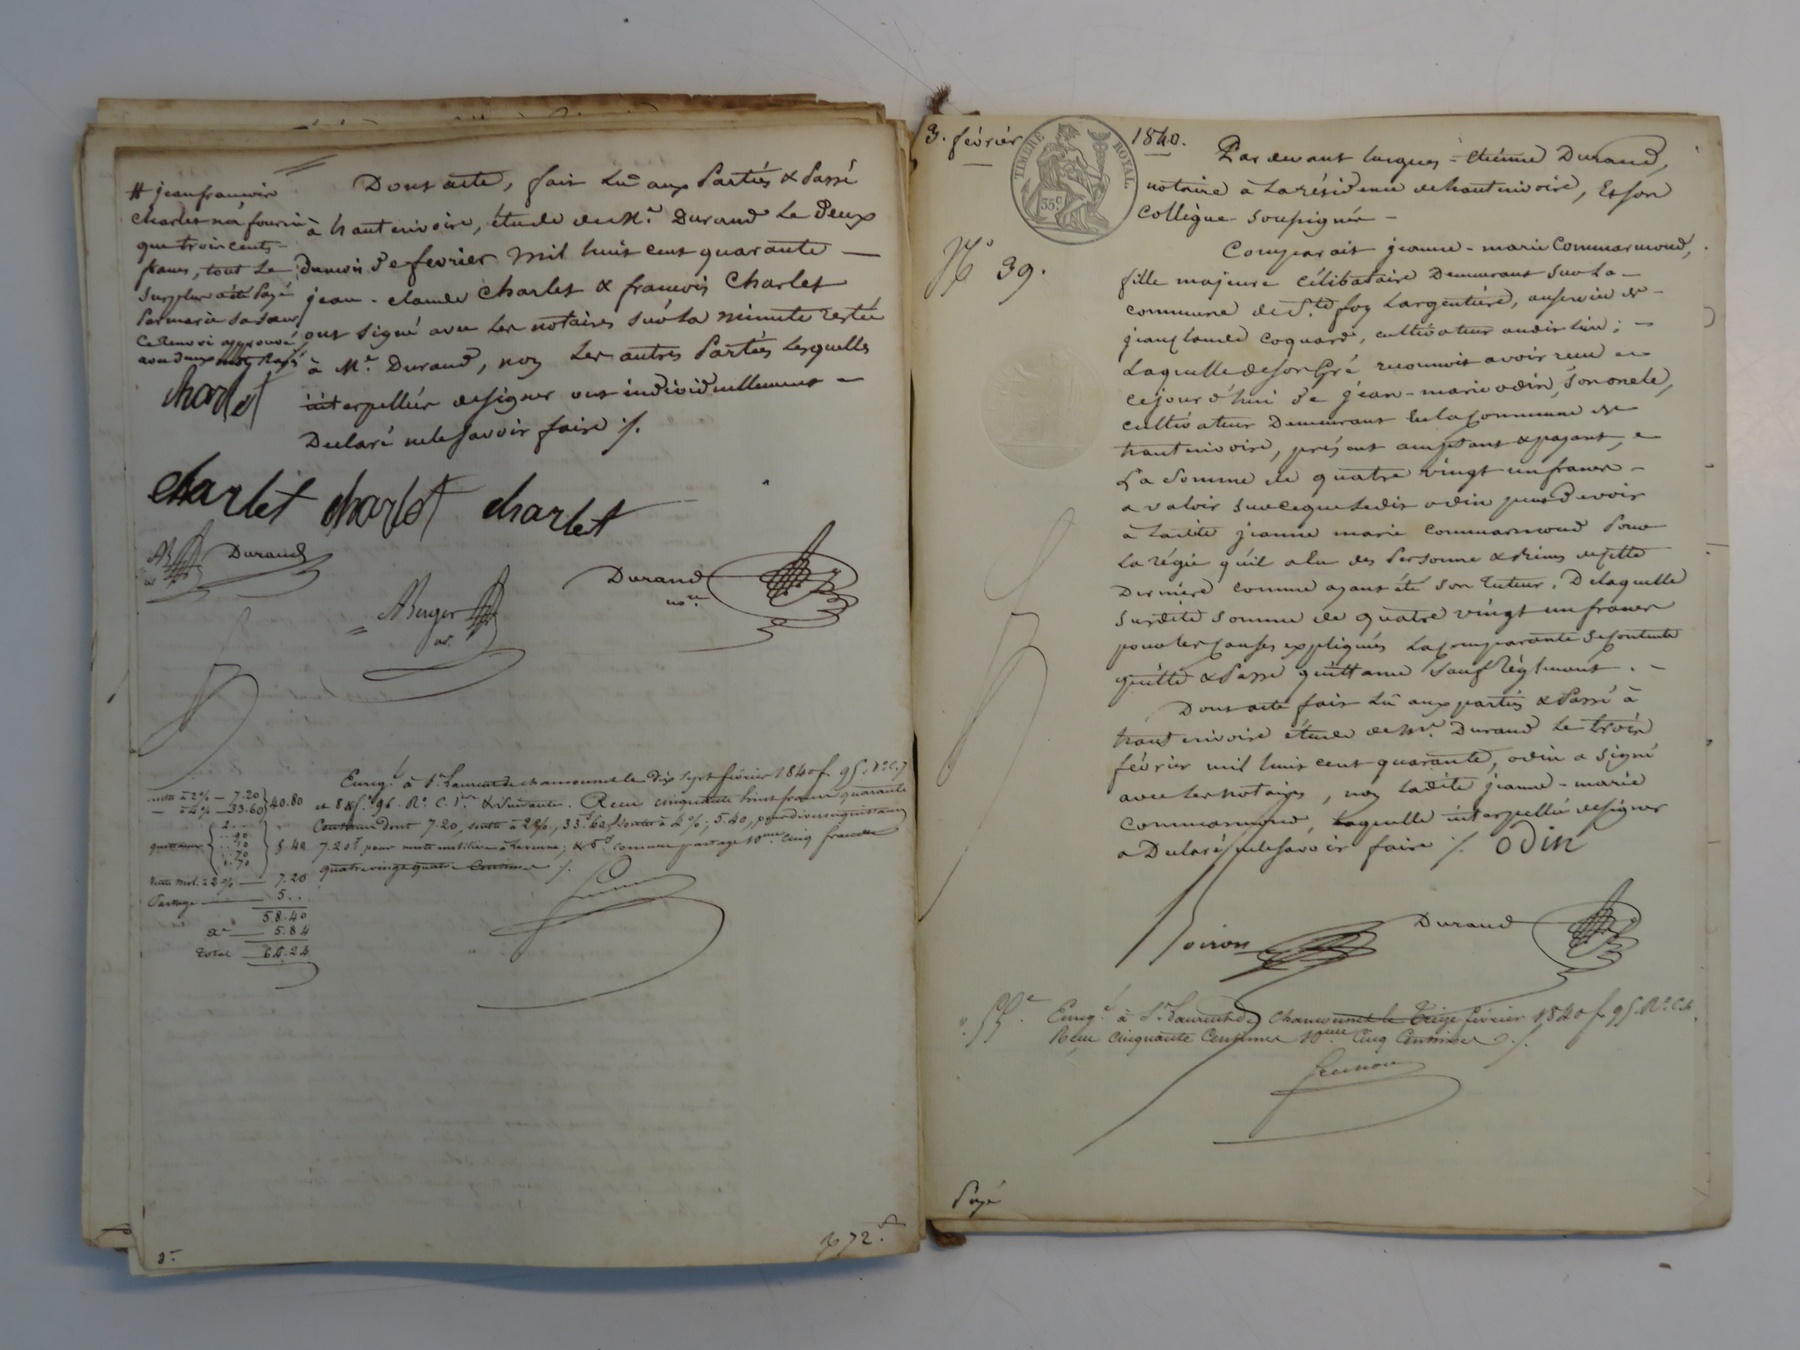 Dont acte, fait Lu aux Parties & Passé
à hautrivoire, étude de Me. Durand Le Deux
Dumois De fevrier Mil huit cent quarante —
jean-claude Charlet & francois Charlet
ont signé avec Les notaires Sur La minute restée
à Me. Durand, non Les autres Parties Lesquelles
interpellées de signer ont individuellement —
Declaré ne le savoir faire ./.
# jean francois
charlet n'a fourni
que trois cents
francs, tout Le
Surplus a été Payé
Par marie sa sœur
Ce Renvoi approuvé
avec deux mots Rayés
charlet
charlet charlet charlet
Durand
Durand
nore.
ABerger
not.
Enregé. à St. Laurent de chamousset le dix sept février 1840 f. 95. Vo. C. 7
et 8 & fo. 96. Ro. C. 1re. & Suivantes. Recu cinquante huit francs quarante
Centimes Dont 7.20, soulte à 2%, 33.60, soulte à 4%; 5.40, pour diverses quittances
7.20 pour vente mobilière à terme; & 5f. comme partage 10eme. cinq francs
quatre vingt quatre Centimes ./.
soulte à 2% — 7.20
— à 4% — 33.60
40.80
quittances
5.40
Vente Mob. à 2% — 7.20
Partage — 5..
58.40
De — 5.84
Total 64.24
3.-
72.
3. février 1840.
TIMBRE ROYAL
35c.
No 39.
Par devant Jacques-étiénne Durand,
notaire à La résidence de hautrivoire, Et son
Collègue soussignés —
Comparait jeanne-marie Commarmond,
fille majeure célibataire Demeurant sur La —
commune de Ste foy Largentière, au service de —
jean claude Coquard, cultivateur audit lieu; —
Laquelle de son Gré reconnoit avoir recu en
ce jour d'hui De jean-marie odin, son oncle,
cultivateur Demeurant Sur La Commune de
hautrivoire, présent acceptant & payant, —
La Somme de quatre vingt un francs —
a valoir sur ce que Ledit odin peut Devoir
à Ladite jeanne marie commarmond Pour
La régie qu'il a eu des Personne & biens de cette
Derniére comme ayant été son Tuteur. De laquelle
Surdite somme de quatre vingt un francs
pour les Causes expliquées La comparante se contente
quitte & Passe quittance Sauf Réglement. —
Dont acte fait Lu aux parties & Passé à
hautrivoire étude de Me. Durand Le trois
février mil huit cent quarante, odin a signé
avec Les notaires, non Ladite jeanne-marie
commarmond, Laquelle interpellée de signer
a Declaré ne le savoir faire ./. odin
Durand
Enregé. à St. Laurent de Chamousset le Treize février 1840 f. 95 Ro. C. 6.
Recu cinquante Centimes 10eme Cinq Centimes ./.
Payé